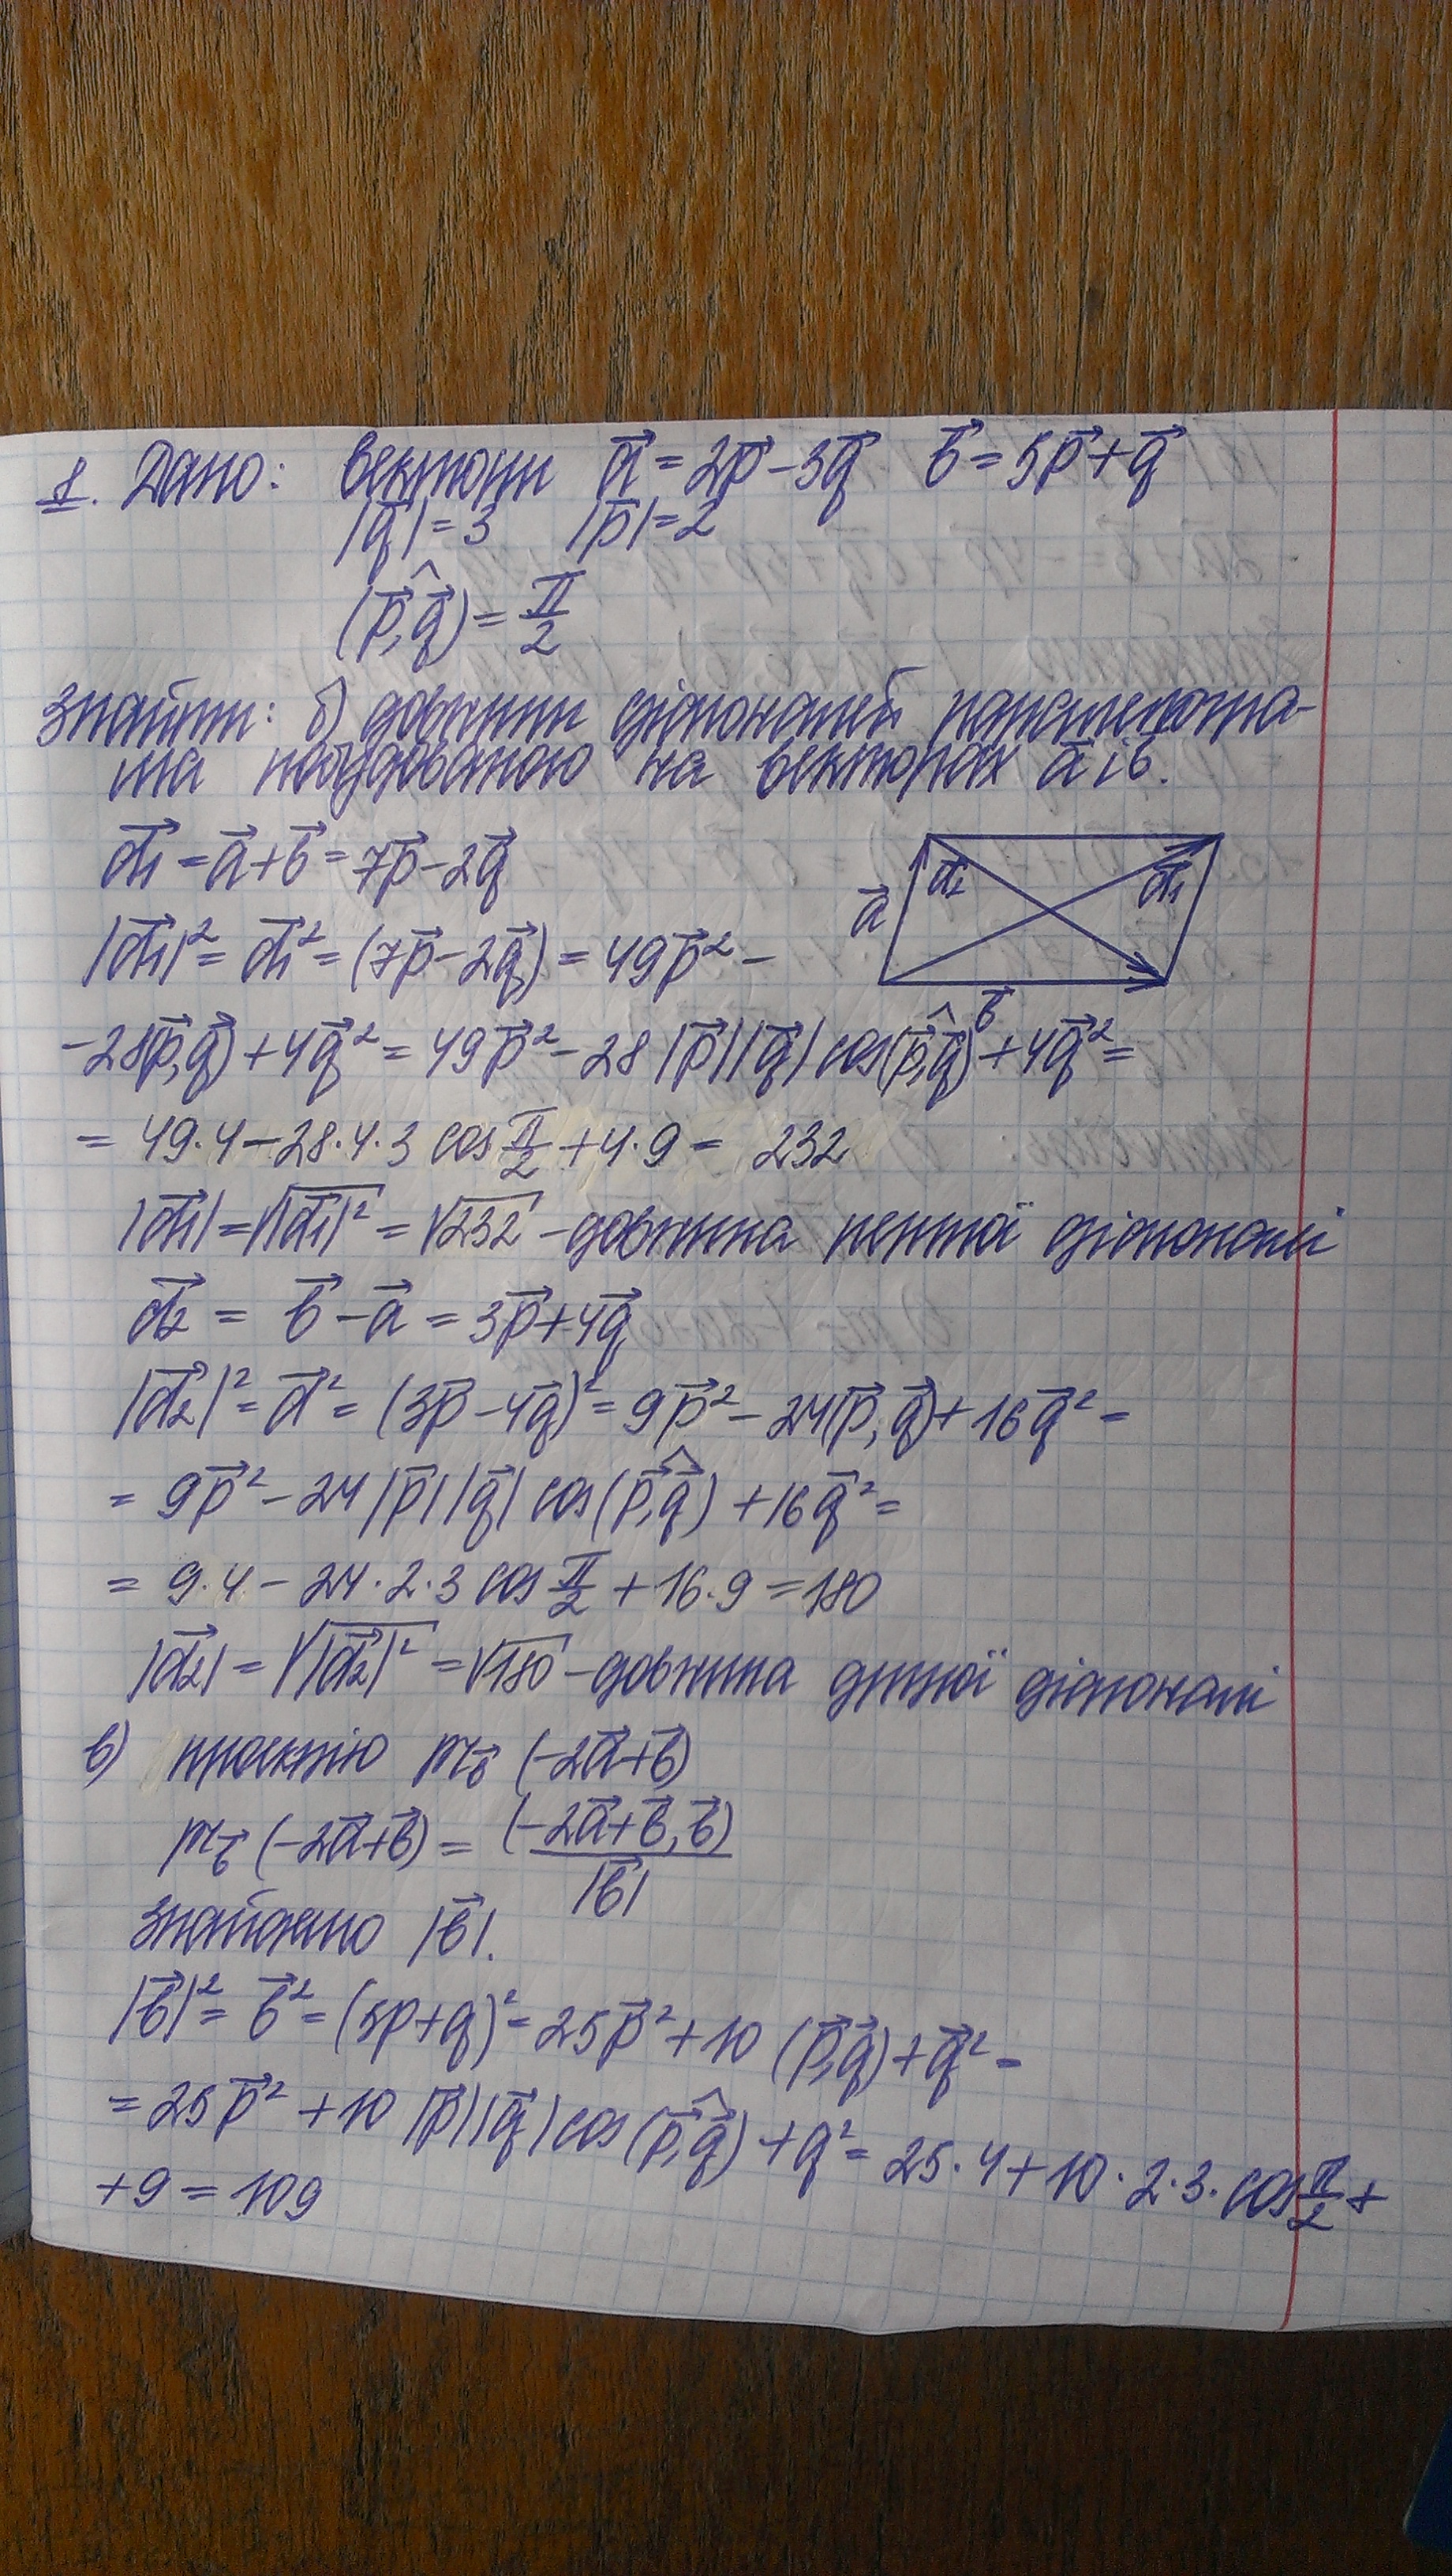 1. Дано: вектори a⃗ = 2p⃗ - 3q⃗ b⃗ = 5p⃗ + q⃗
|q⃗| = 3 |p⃗| = 2
(p⃗,^q⃗) = π/2
Знайти: б) довжини діагоналей паралелогра-
ма побудованого на векторах a⃗ і b⃗.
d⃗₁ = a⃗ + b⃗ = 7p⃗ - 2q⃗
a⃗ d⃗₂ d⃗₁ b⃗
|d⃗₁|² = d⃗₁² = (7p⃗ - 2q⃗) = 49p⃗² -
- 28(p⃗,q⃗) + 4q⃗² = 49p⃗² - 28 |p⃗| |q⃗| cos(p⃗,^q⃗) + 4q⃗² =
= 49·4 - 28·4·3 cos π/2 + 4·9 = 232
|d⃗₁| = √|d⃗₁|² = √232 - довжина першої діагоналі
d⃗₂ = b⃗ - a⃗ = 3p⃗ + 4q⃗
|d⃗₂|² = d⃗² = (3p⃗ - 4q⃗)² = 9p⃗² - 24(p⃗,q⃗) + 16q⃗² =
= 9p⃗² - 24 |p⃗| |q⃗| cos(p⃗,^q⃗) + 16q⃗² =
= 9·4 - 24·2·3 cos π/2 + 16·9 = 180
|d⃗₂| = √|d⃗₂|² = √180 - довжина другої діагоналі
в) проекцію пр_b⃗ (-2a⃗ + b⃗)
пр_b⃗ (-2a⃗ + b⃗) = (-2a⃗ + b⃗, b⃗) / |b⃗|
Знайдемо |b⃗|.
|b⃗|² = b⃗² = (5p + q)² = 25p⃗² + 10 (p⃗,q⃗) + q⃗² =
= 25p⃗² + 10 |p⃗| |q⃗| cos(p⃗,^q⃗) + q² = 25·4 + 10·2·3·cos π/2 +
+ 9 = 109